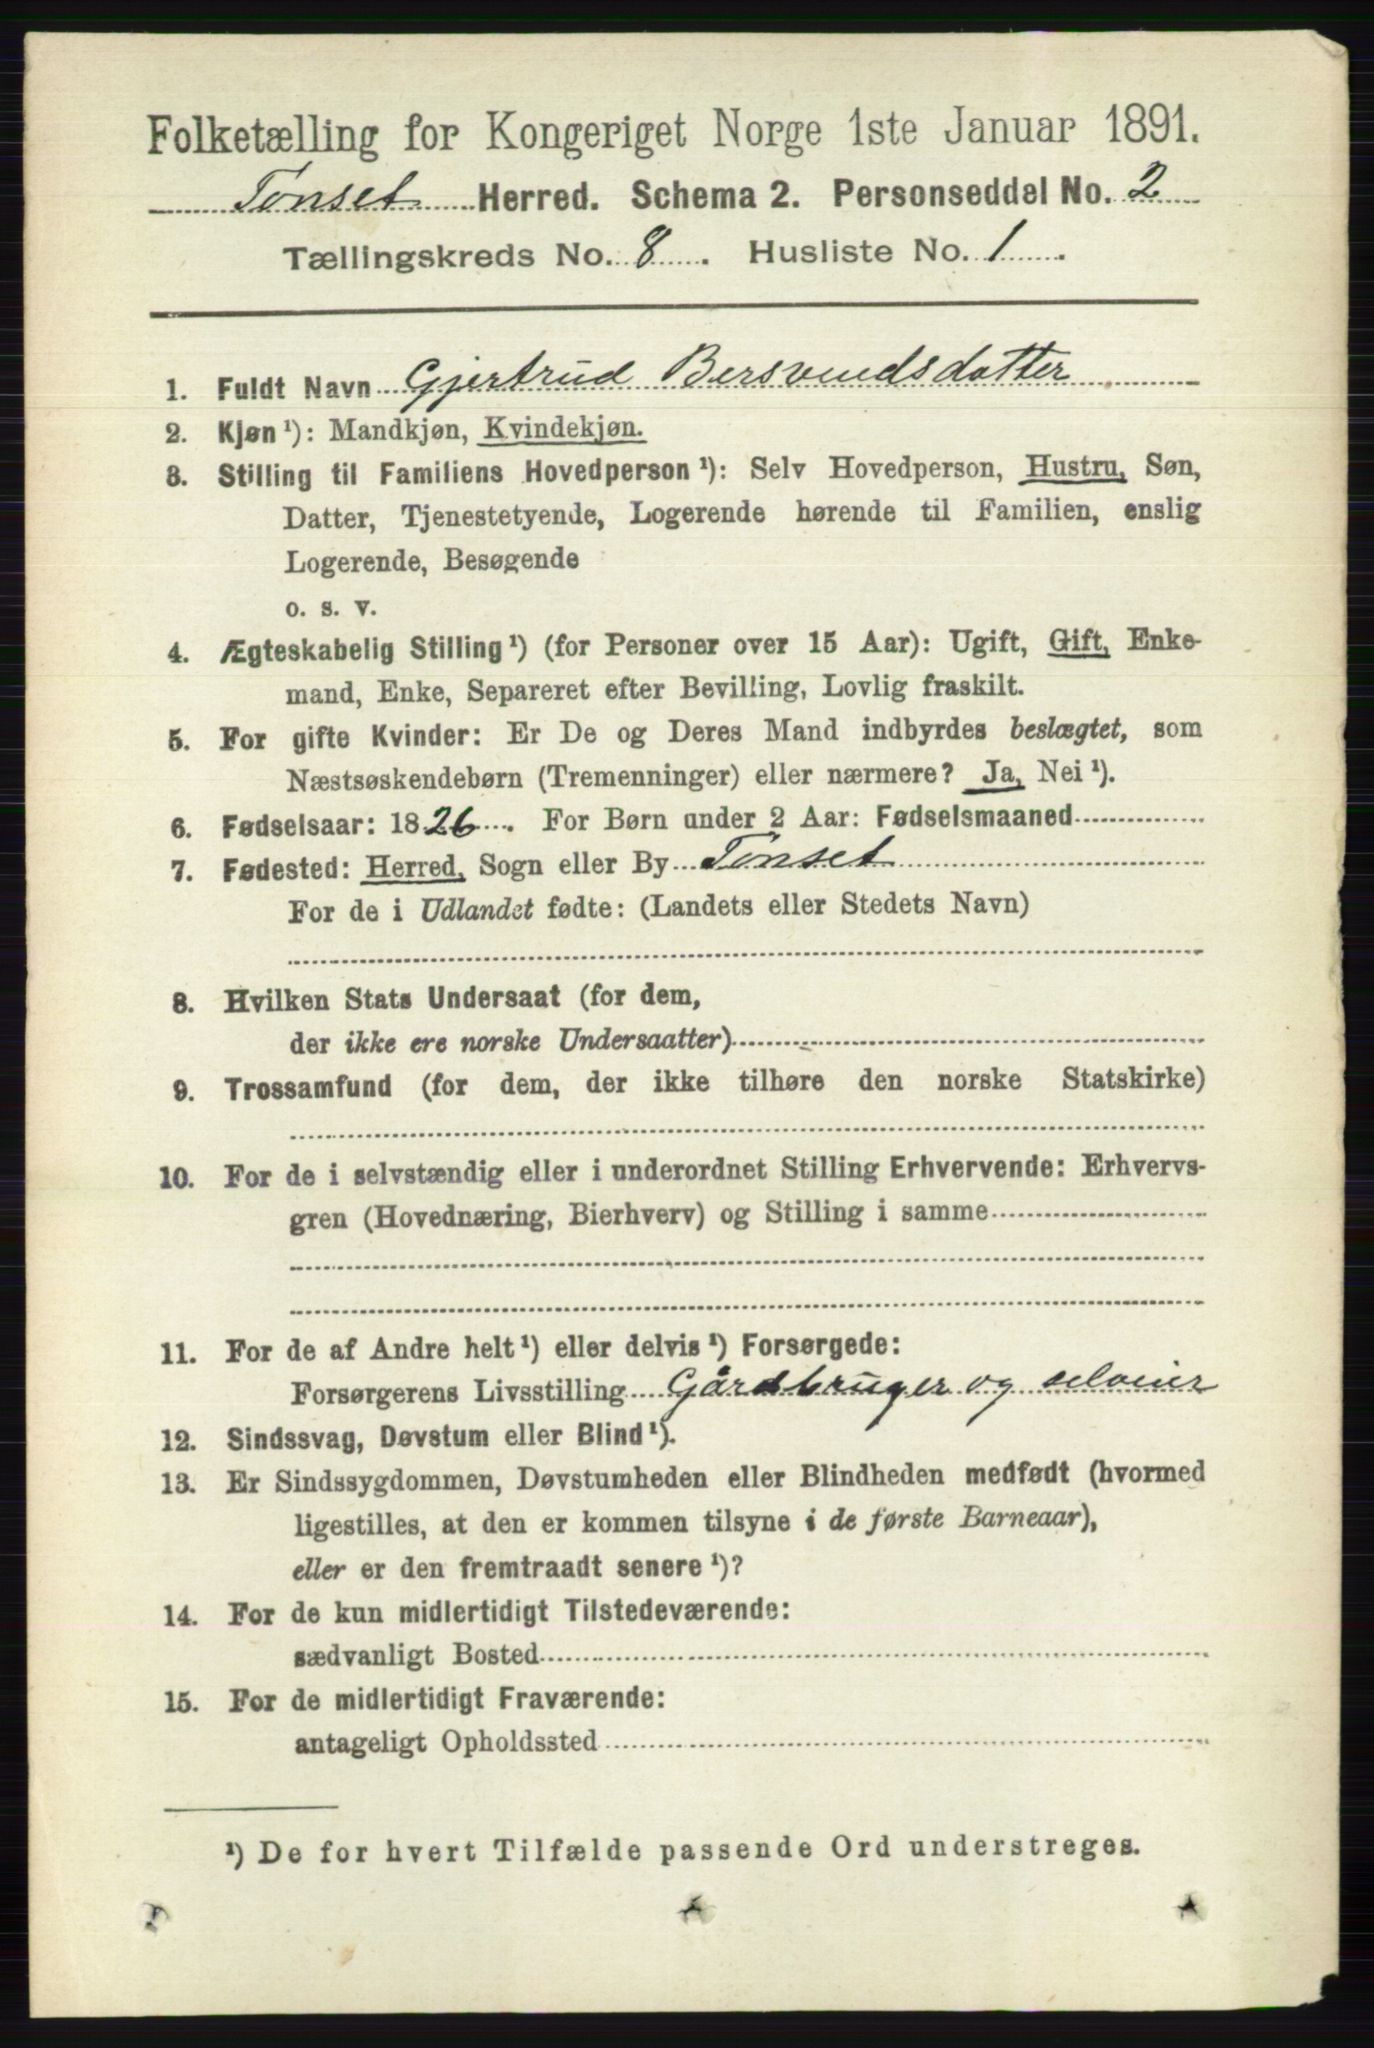 Folketælling for Kongeriget Norge 1ste Januar 1891.
Tønset Herred. Schema 2. Personseddel No. 2
Tællingskreds No. 8. Husliste No. 1.
1. Fuldt Navn Gjertrud Bersvendsdatter
2. Kjøn ¹): Mandkjøn, Kvindekjøn.
3. Stilling til Familiens Hovedperson ¹): Selv Hovedperson, Hustru, Søn,
Datter, Tjenestetyende, Logerende hørende til Familien, enslig
Logerende, Besøgende
o. s. v.
4. Ægteskabelig Stilling ¹) (for Personer over 15 Aar): Ugift, Gift, Enke-
mand, Enke, Separeret efter Bevilling, Lovlig fraskilt.
5. For gifte Kvinder: Er De og Deres Mand indbyrdes beslægtet, som
Næstsøskendebørn (Tremenninger) eller nærmere? Ja, Nei ¹).
6. Fødselsaar: 1826. For Børn under 2 Aar: Fødselsmaaned
7. Fødested: Herred, Sogn eller By Tønset
For de i Udlandet fødte: (Landets eller Stedets Navn)
8. Hvilken Stats Undersaat (for dem,
der ikke ere norske Undersaatter)
9. Trossamfund (for dem, der ikke tilhøre den norske Statskirke)
10. For de i selvstændig eller i underordnet Stilling Erhvervende: Erhvervs-
gren (Hovednæring, Bierhverv) og Stilling i samme
11. For de af Andre helt ¹) eller delvis ¹) Forsørgede:
Forsørgerens Livsstilling Gårdbruger og selveier
12. Sindssvag, Døvstum eller Blind ¹).
13. Er Sindssygdommen, Døvstumheden eller Blindheden medfødt (hvormed
ligestilles, at den er kommen tilsyne i de første Barneaar),
eller er den fremtraadt senere ¹)?
14. For de kun midlertidigt Tilstedeværende:
sædvanligt Bosted
15. For de midlertidigt Fraværende:
antageligt Opholdssted
¹) De for hvert Tilfælde passende Ord understreges.